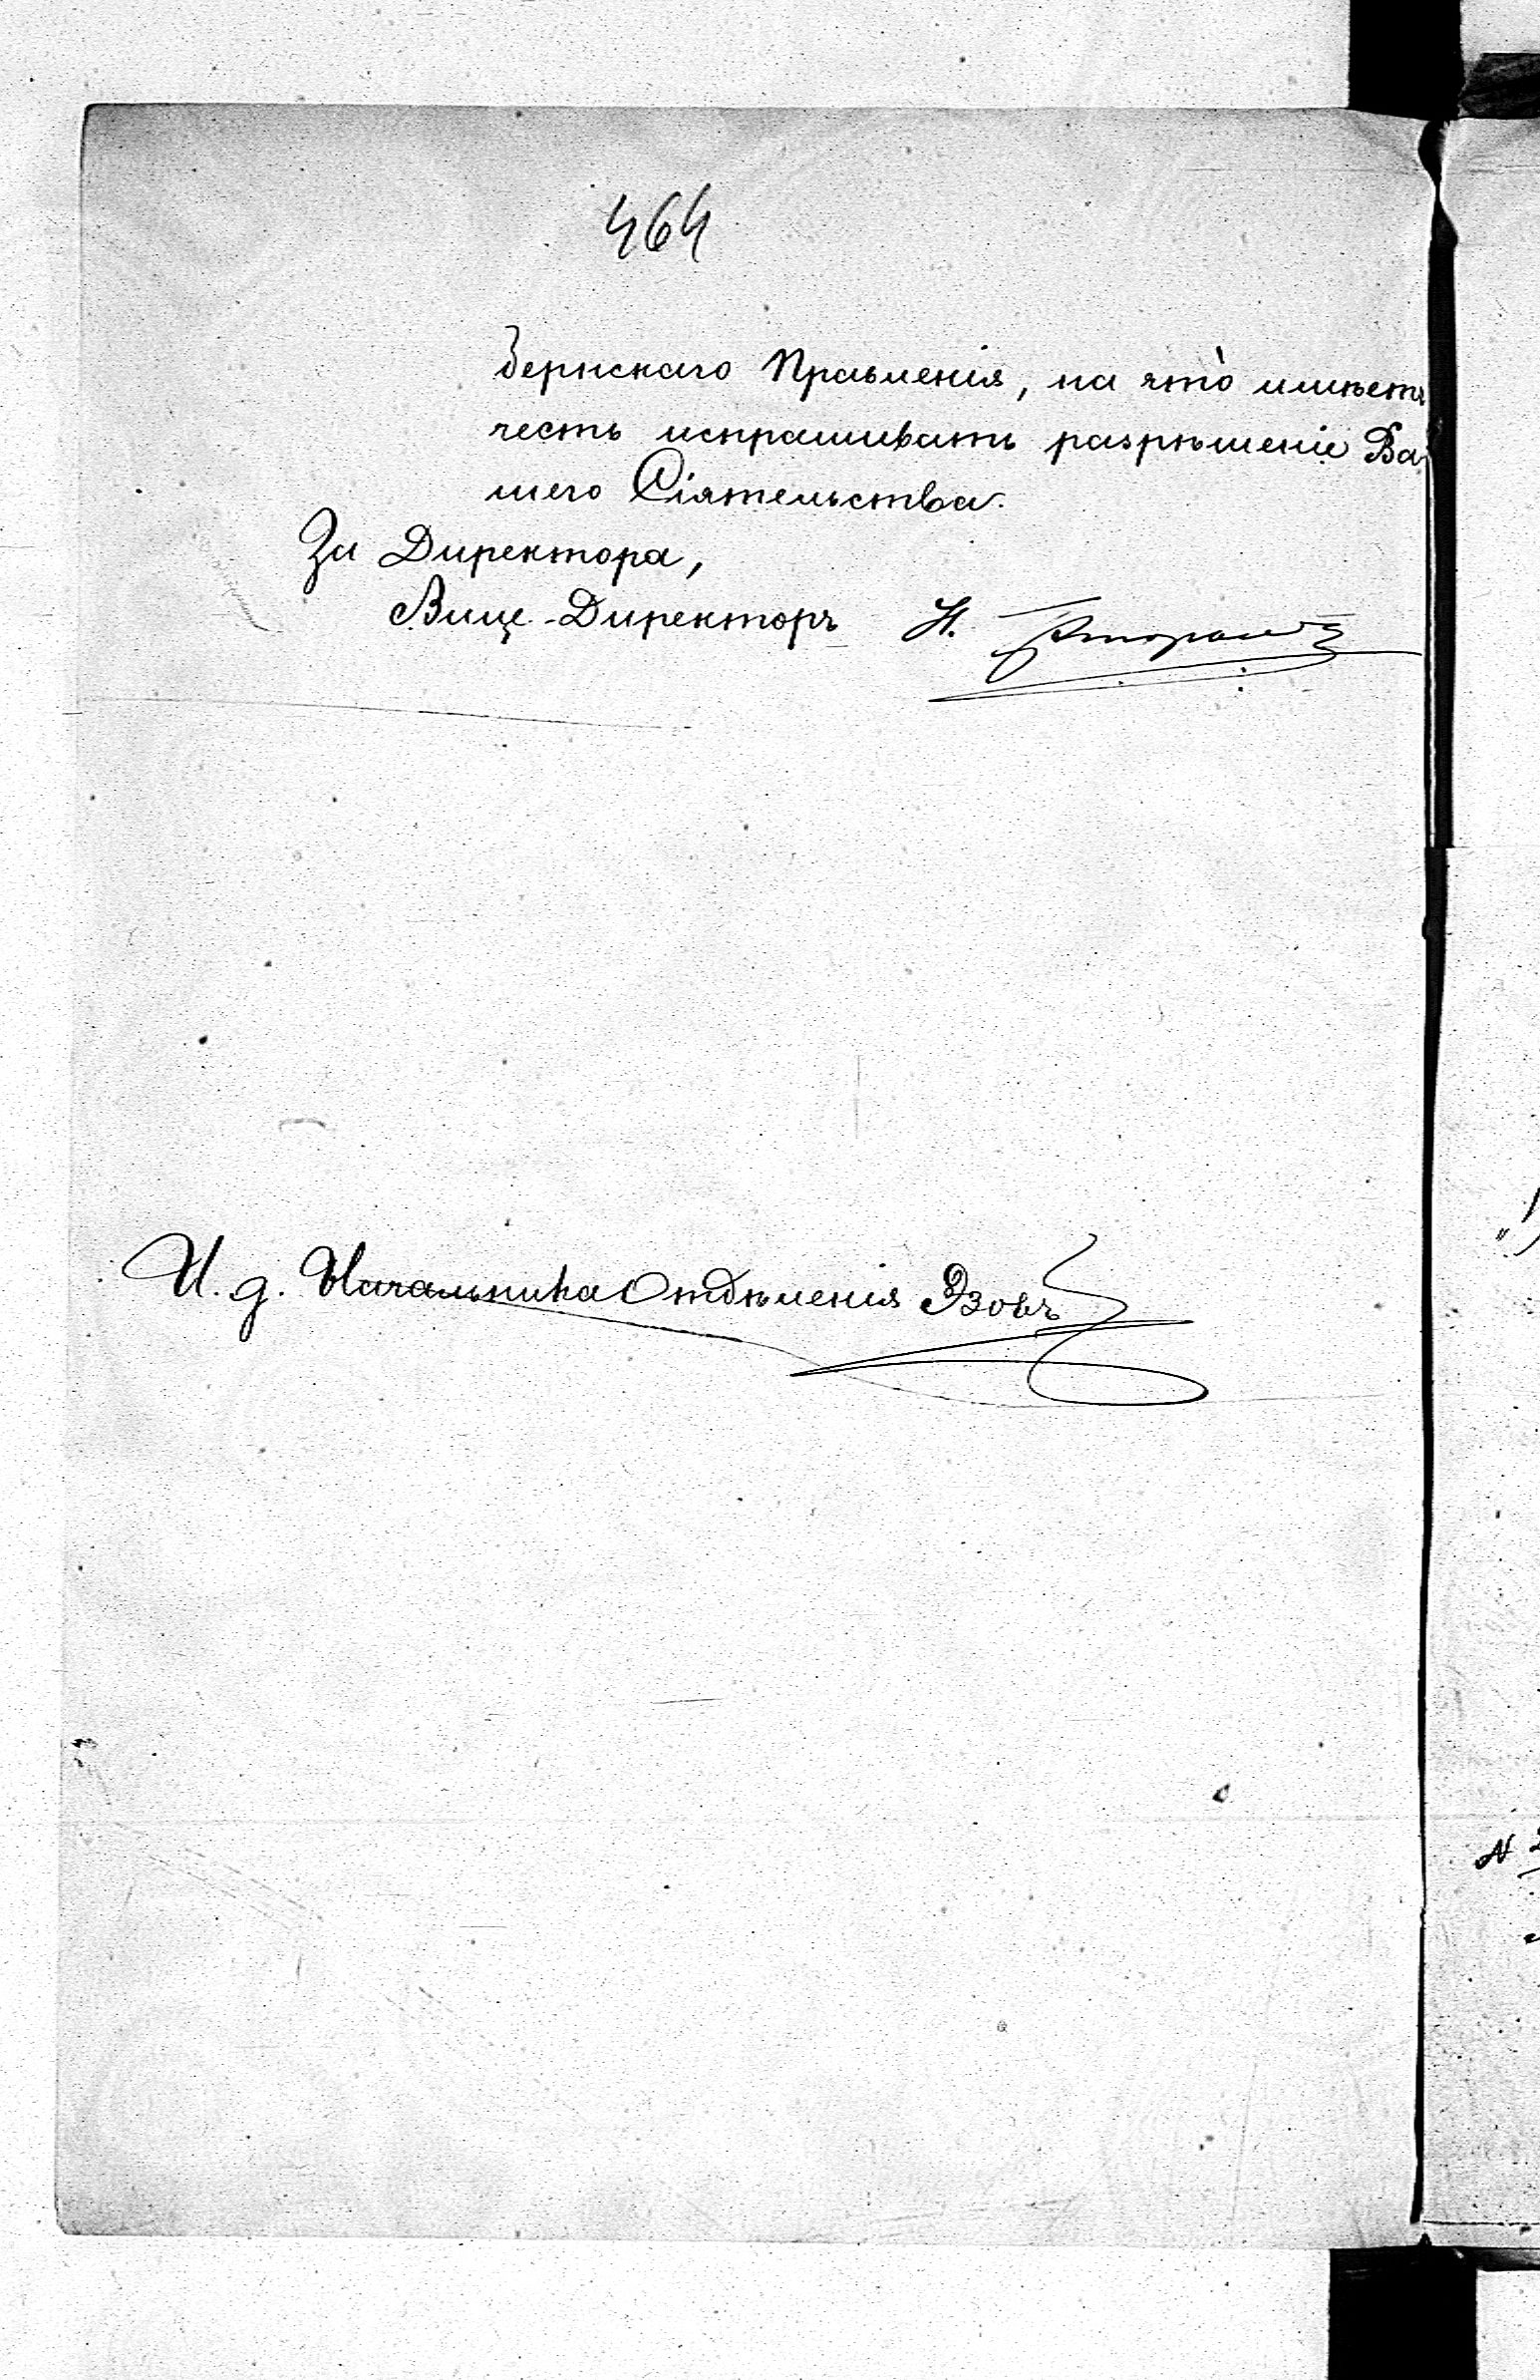 464
бернскаго Правленія, на что̀ имѣетъ
честь испрашивать разрѣшеніе Ва
шего Сіятельства.
За Директора,
Вице-Директоръ Н.
И. д. Начальника Отдѣленія Эзовъ
N